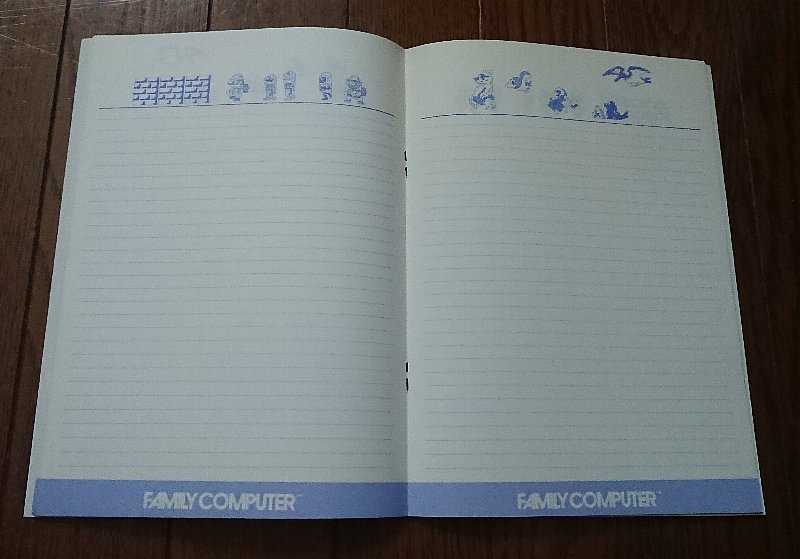 FAMILY COMPUTER™
FAMILY COMPUTER™